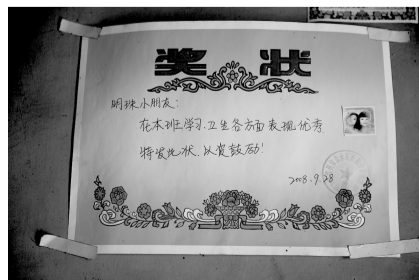 奖状
明珠小朋友:
在本班学习、卫生各方面表现优秀
特发此状、以资鼓励!
2008.9.28